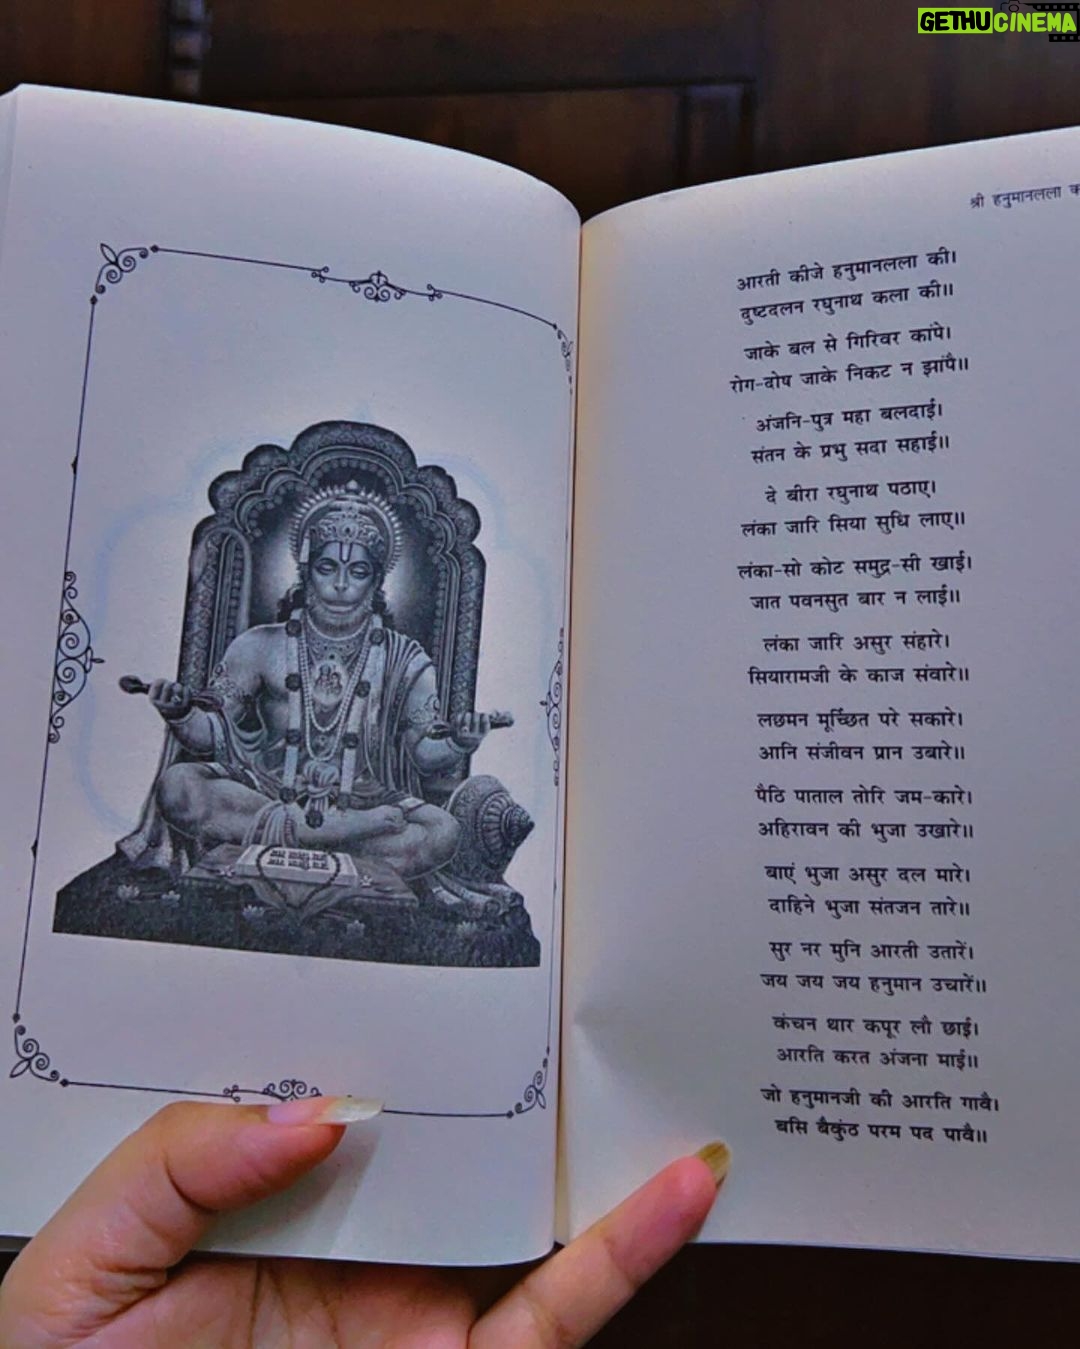 GETHUCINEMA
श्री हनुमानलला
आरती कीजे हनुमानलला की।
दुष्टदलन रघुनाथ कला की॥
जाके बल से गिरिवर कांपे।
रोग-दोष जाके निकट न झांपै॥
अंजनि-पुत्र महा बलदाई।
संतन के प्रभु सदा सहाई॥
दे बीरा रघुनाथ पठाए।
लंका जारि सिया सुधि लाए॥
लंका-सो कोट समुद्र-सी खाई।
जात पवनसुत बार न लाई॥
लंका जारि असुर संहारे।
सियारामजी के काज संवारे॥
लछमन मूर्च्छित परे सकारे।
आनि संजीवन प्रान उबारे॥
पैठि पाताल तोरि जम-कारे।
अहिरावन की भुजा उखारे॥
बाएं भुजा असुर दल मारे।
दाहिने भुजा संतजन तारे॥
सुर नर मुनि आरती उतारें।
जय जय जय हनुमान उचारें॥
कंचन थार कपूर लौ छाई।
आरति करत अंजना माई॥
जो हनुमानजी की आरति गावै।
बसि बैकुंठ परम पद पावै॥